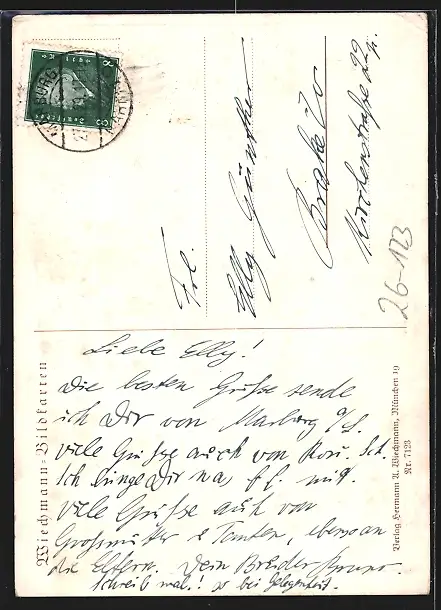 Frl.
Elly Günther
Brake i/o
Kirchenstraße
26-123
Wiechmann-Bildkarten
Verlag Hermann A. Wiechmann, München 19
Nr. 7123
Liebe Elly!
Die besten Grüße sende
ich Dir von Marburg a/L.
viele Grüße auch von
Ich bringe Dir was mit.
viele Grüße auch von
Großmutter & Tanten, ebenso an
die Eltern. Dein Bruder
schreib mal! so bei Gelegenheit.